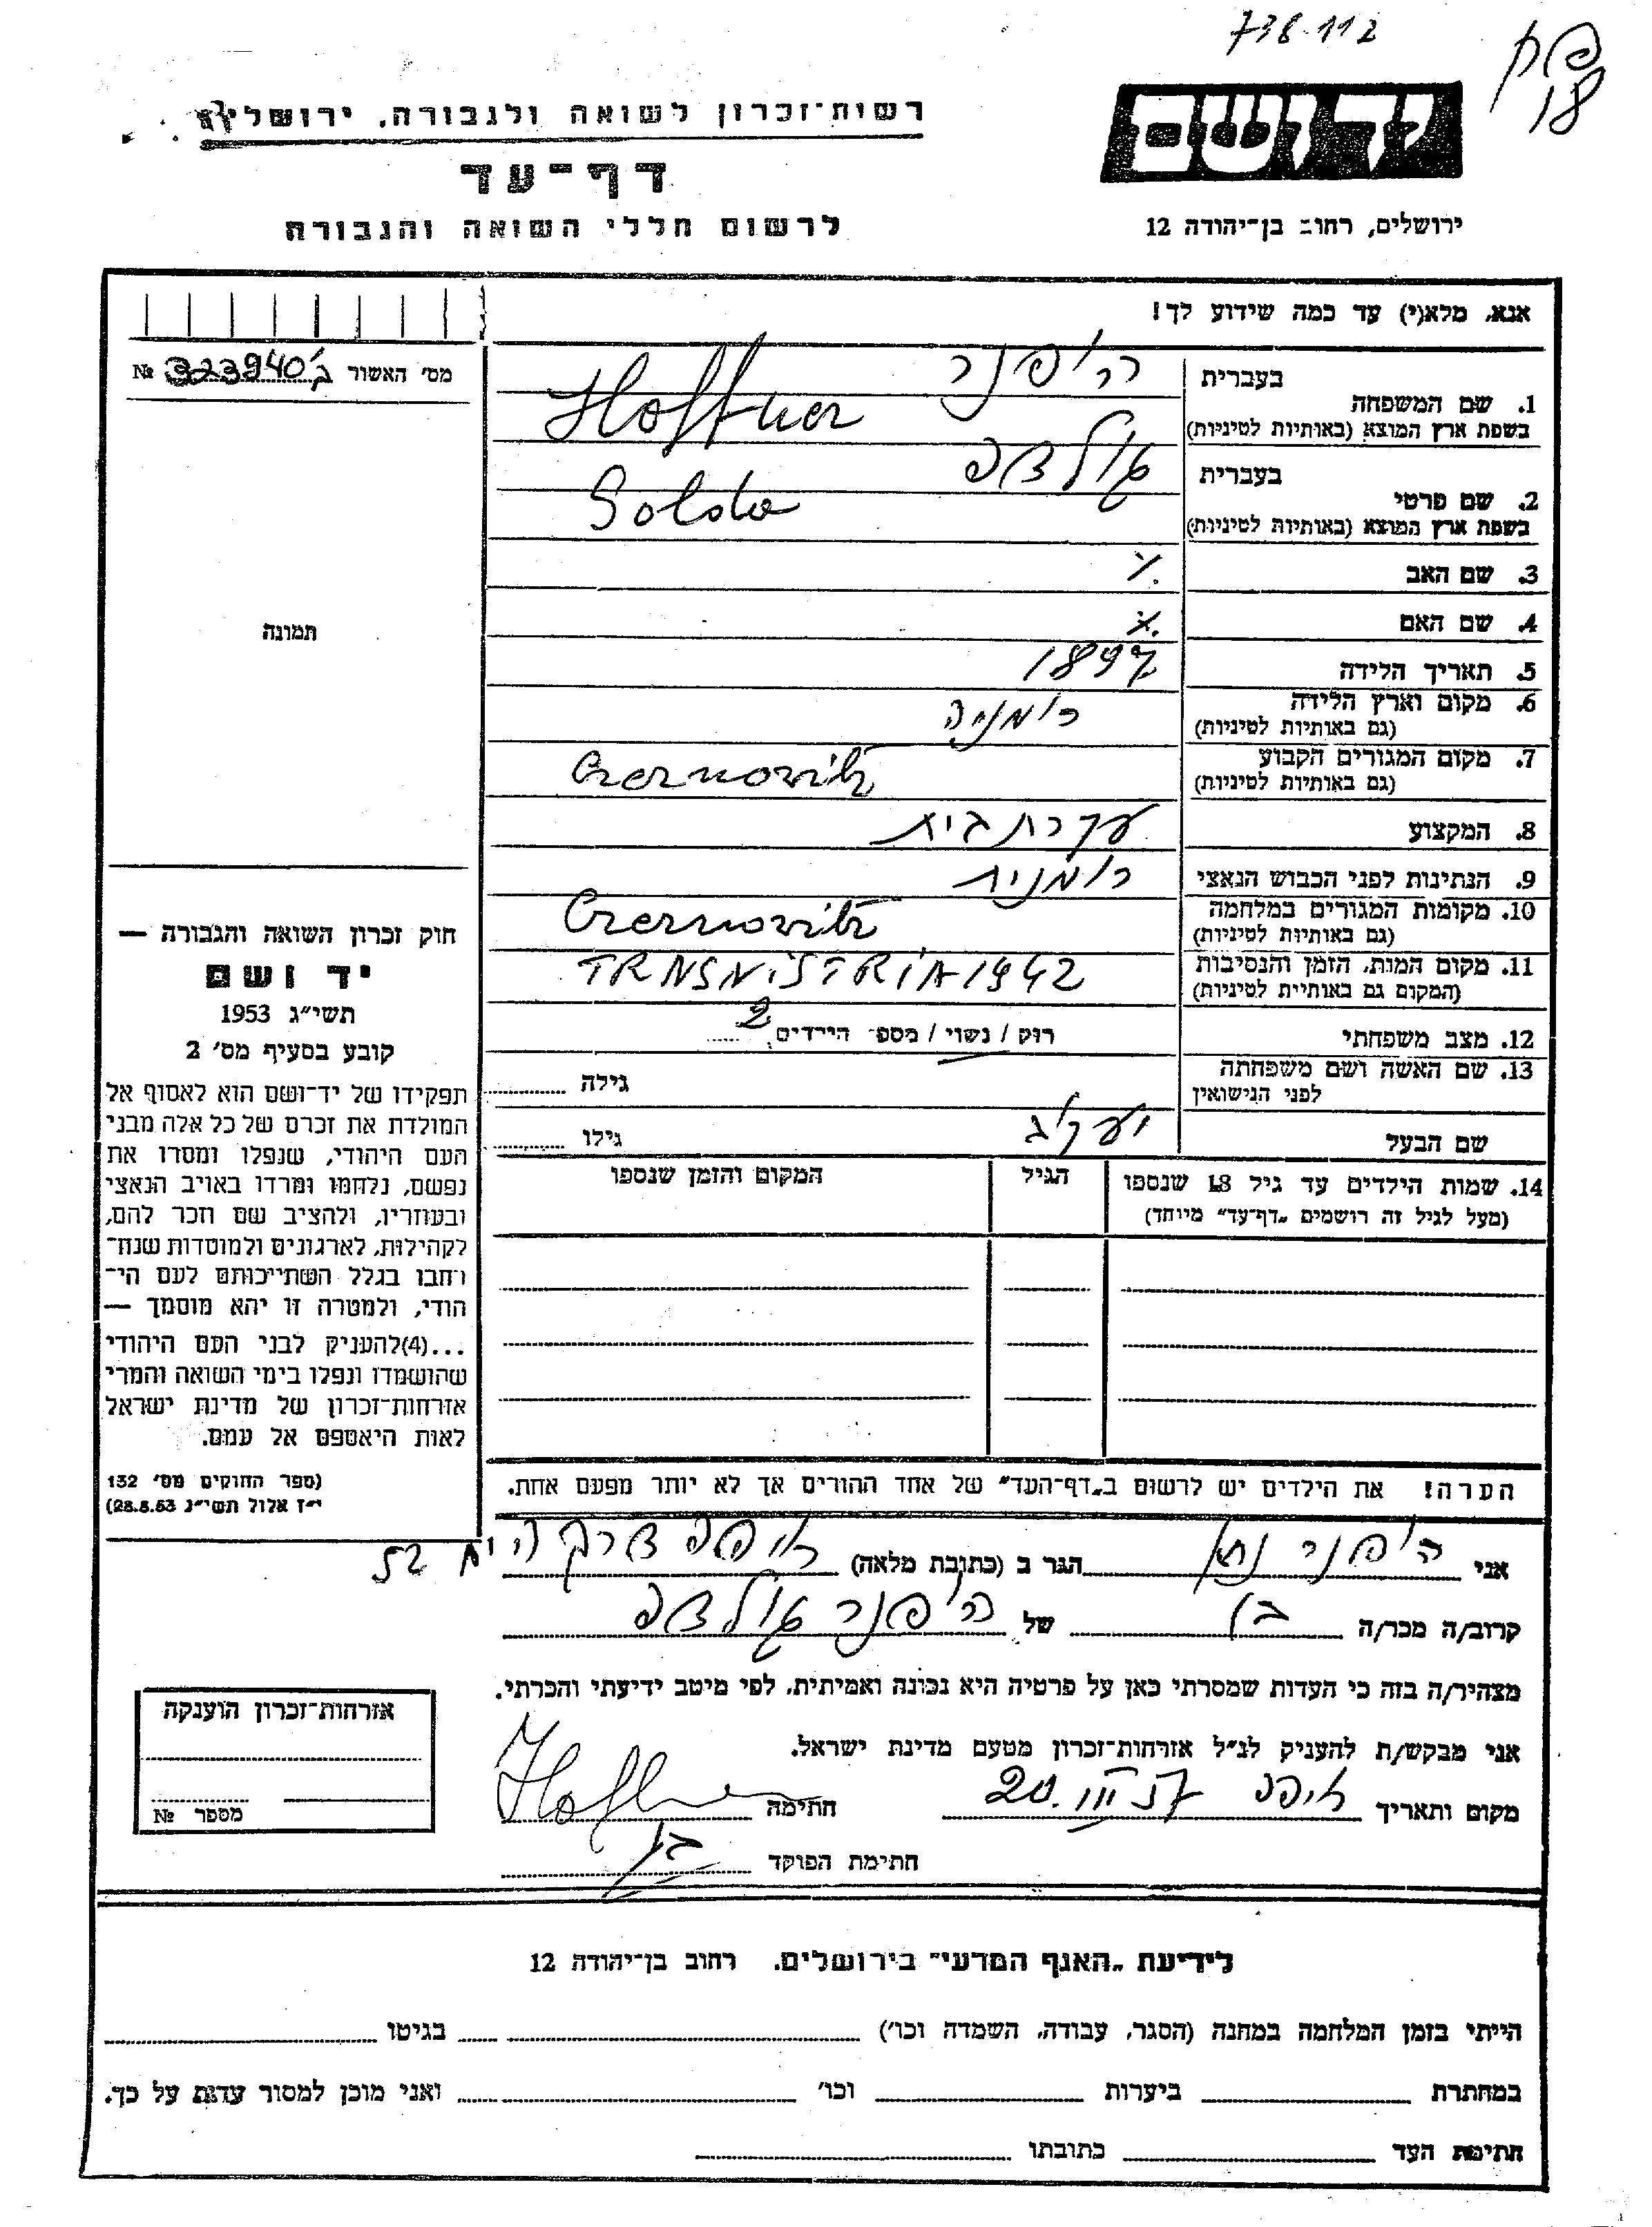 738.112
18
יד ושם
רשות־זכרון לשואה ולגבורה, ירושלים
דף־עד
לרשום חללי השואה והגבורה
ירושלים, רחוב בן־יהודה 12
אנא, מלא(י) עד כמה שידוע לך!
מס׳ האשור ב׳323940 №
בעברית הופנר
1. שם המשפחה
בשפת ארץ המוצא (באותיות לטיניות) Hoffner
בעברית גולדה
2. שם פרטי
בשפת ארץ המוצא (באותיות לטיניות) Golda
3. שם האב
4. שם האם
5. תאריך הלידה 1897
6. מקום וארץ הלידה רומניה
(גם באותיות לטיניות)
7. מקום המגורים הקבוע Czernovitz
(גם באותיות לטיניות)
8. המקצוע עקרת בית
9. הנתינות לפני הכבוש הנאצי רומנית
10. מקומות המגורים במלחמה Czernovitz
(גם באותיות לטיניות)
11. מקום המות, הזמן והנסיבות TRNSNiSTRiA 1942
(המקום גם באותיות לטיניות)
12. מצב משפחתי רוק / נשוי / מספר הילדים 2
13. שם האשה ושם משפחתה גילה
לפני הנישואין
שם הבעל יעקב גילו
14. שמות הילדים עד גיל 18 שנספו הגיל המקום והזמן שנספו
(מעל לגיל זה רושמים „דף־עד״ מיוחד)
הערה! את הילדים יש לרשום ב„דף־העד״ של אחד ההורים אך לא יותר מפעם אחת.
תמונה
חוק זכרון השואה והגבורה —
יד ושם
תשי״ג 1953
קובע בסעיף מס׳ 2
תפקידו של יד־ושם הוא לאסוף אל
המולדת את זכרם של כל אלה מבני
העם היהודי, שנפלו ומסרו את
נפשם, נלחמו ומרדו באויב הנאצי
ובעוזריו, ולהציב שם וזכר להם,
לקהילות, לארגונים ולמוסדות שנח־
רחבו בגלל השתייכותם לעם הי־
הודי, ולמטרה זו יהא מוסמך —
...(4)להעניק לבני העם היהודי
שהושמדו ונפלו בימי השואה והמרי
אזרחות־זכרון של מדינת ישראל
לאות היאספם אל עמם.
(ספר החוקים מס׳ 132
י״ז אלול תשי״ג 28.8.53)
אני הופנר נתן הגר ב (כתובת מלאה) חיפה דרך הים 52
קרוב/ה מכר/ה בן של הופנר גולדה
מצהיר/ה בזה כי העדות שמסרתי כאן על פרטיה היא נכונה ואמיתית, לפי מיטב ידיעתי והכרתי.
אני מבקש/ת להעניק לנ״ל אזרחות־זכרון מטעם מדינת ישראל.
מקום ותאריך חיפה 20.III.57 חתימה Hoffner
חתימת הפוקד
אזרחות־זכרון הוענקה
מספר №
לידיעת „האגף המדעי״ בירושלים. רחוב בן־יהודה 12
הייתי בזמן המלחמה במחנה (הסגר, עבודה, השמדה וכו׳) בגיטו
במחתרת ביערות וכו׳ ואני מוכן למסור עדות על כך.
חתימת העד כתובתו